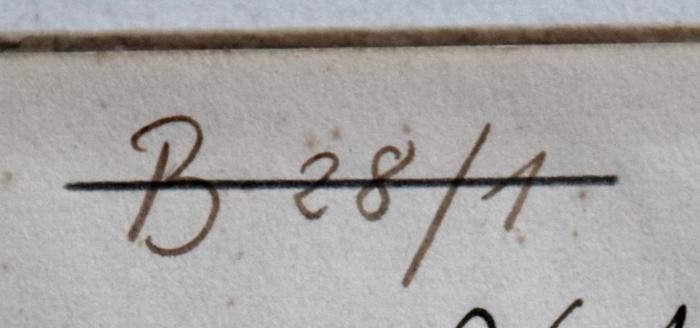 B 28/1